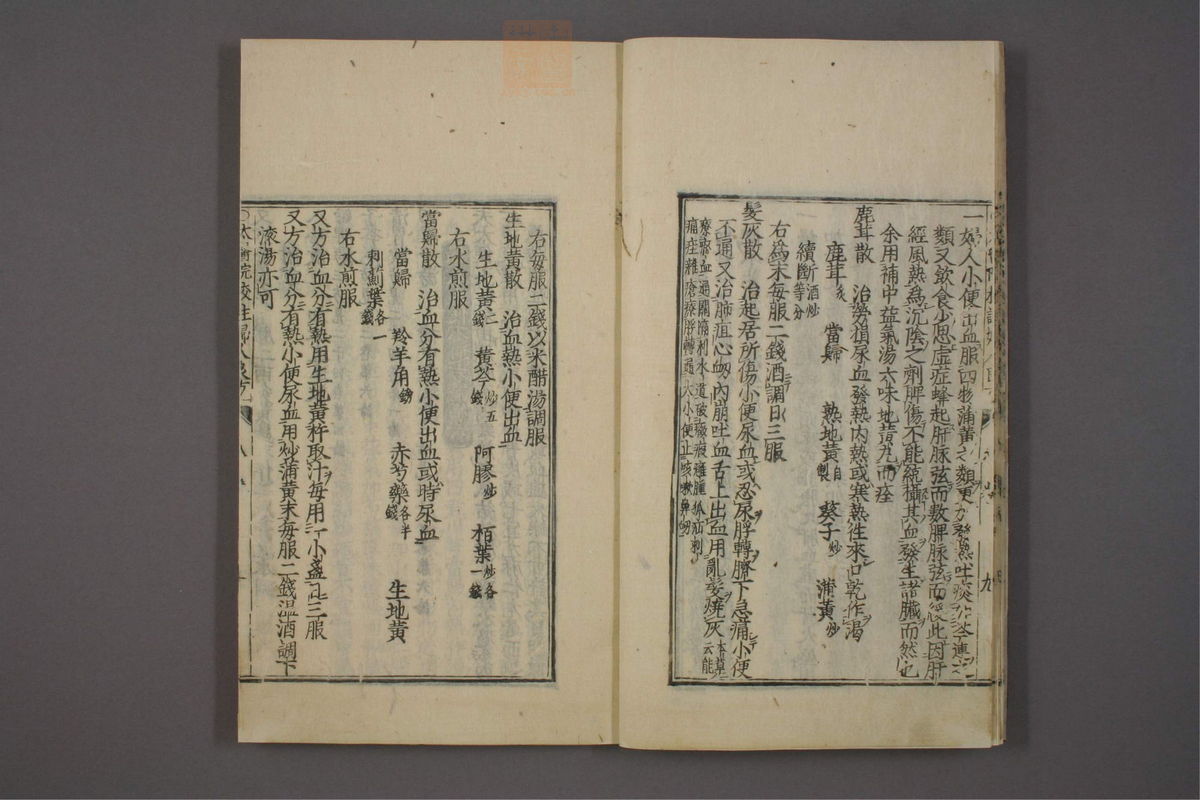 一婦人小便出血服四物蒲黃之類更加發熱吐痰加芩連之
類又飮食少思虛症蜂起肝脉弦而數脾脉弦而緩此因肝
經風熱爲沉陰之劑脾傷不能統攝其血發生諸臟而然也
余用補中益氣湯六味地黃丸而痊
鹿茸散 治勞損尿血發熱内熱或寒熱往來口乾作渴
鹿茸炙 當歸 熟地黃自製 葵子炒 蒲黃炒
續斷酒炒等分
右爲末每服二錢酒調日三服
髮灰散 治起居所傷小便尿血或忍尿脬轉臍下急痛小便
不通又治肺疽心衂内崩吐血舌上出血用亂髮燒灰本草云能
療瘀血通關膈利水道破癥瘕癰腫狐疝刺
痛痊雜瘡療脬轉通大小便止咳嗽鼻衂
右每服二錢以米醋湯調服
生地黃散 治血熱小便出血
生地黃二錢 黃芩炒五錢 阿膠炒 栢葉炒各一錢
右水煎服
當歸散 治血分有熱小便出血或時尿血
當歸 羚羊角鎊 赤芍藥各半錢 生地黃
刺薊葉各一錢
右水煎服
又方治血分有熱用生地黃杵取汁每用一小盞日三服
又方治血分有熱小便尿血用炒蒲黃末每服二錢溫酒調下
液湯亦可
太醫院校註婦人良方 八